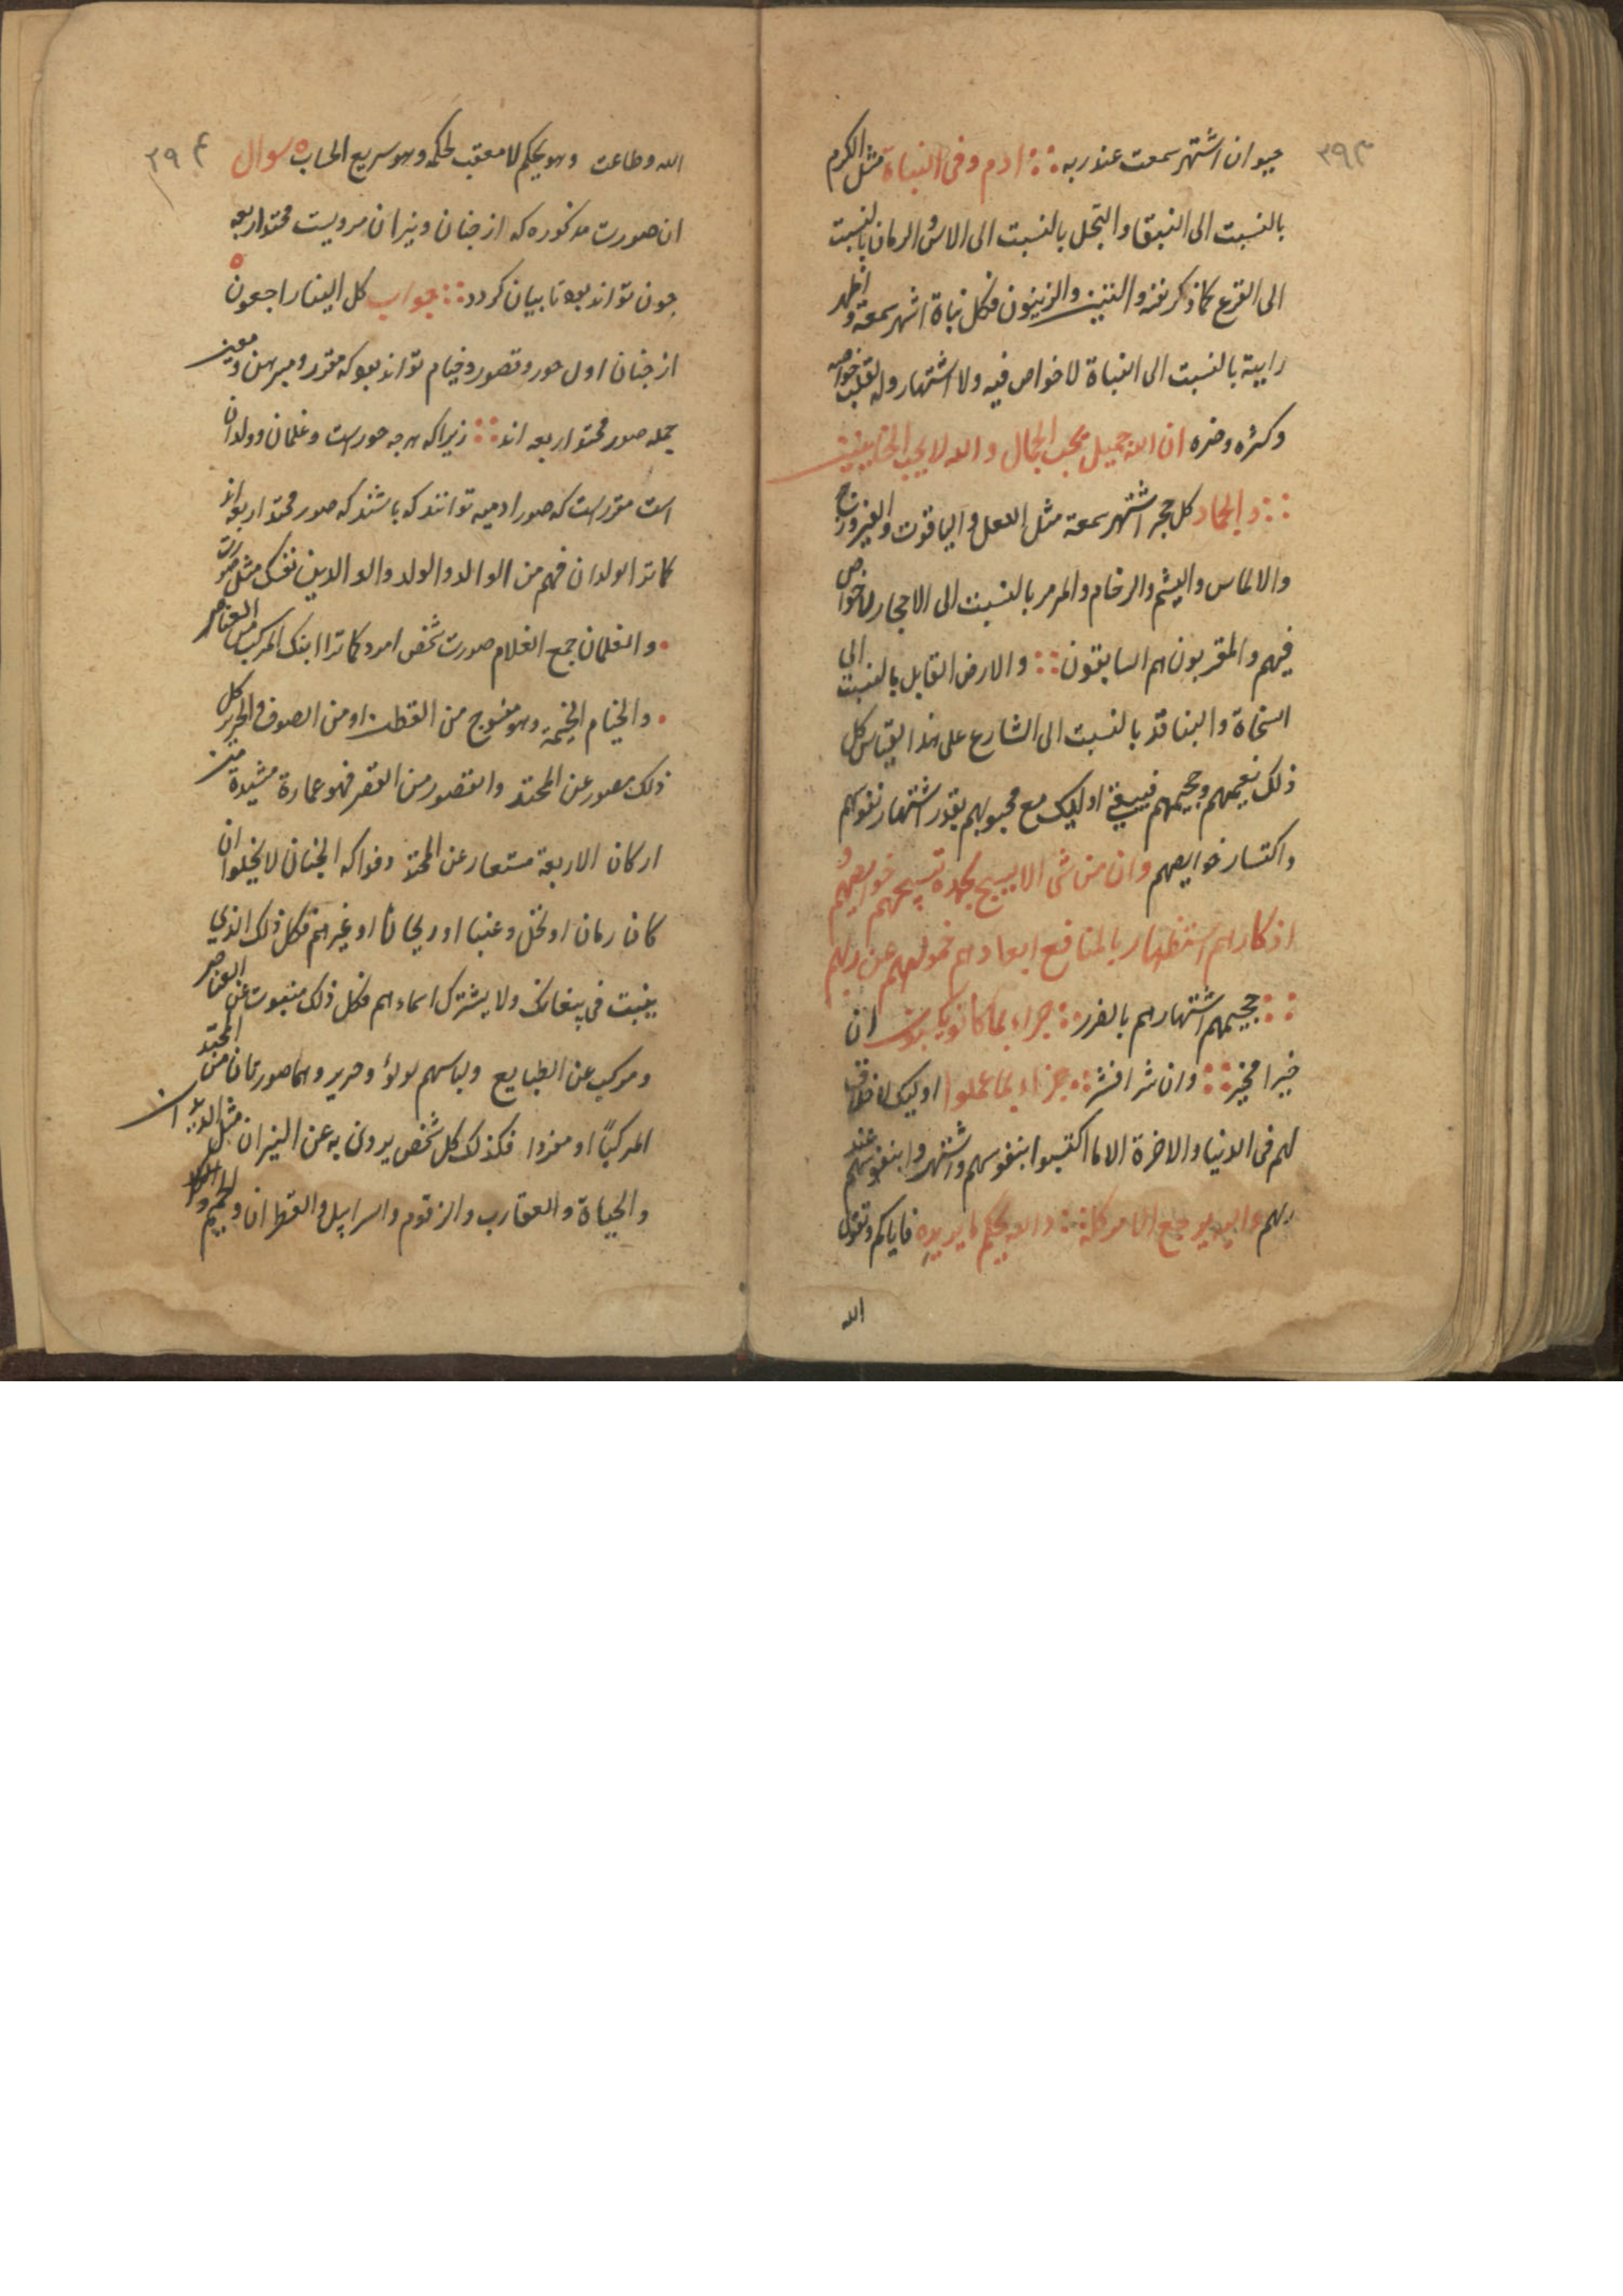 ٣٩٣
حیوان اشتهر سمعت عند ربه ∴ ادم وفی النباة مثل الکرم
بالنسبت الی النبق والنخل بالنسبت الی الاس والرمان بالنسبت
الی القرع کما ذکر نفه والتین والزیتون فکل نباة اشتهر سمعة و اظهر
رایبة بالنسبت الی النباة لاخواص فیه ولا اشتهار وله لقلت خواصه
وکثره وضره ان الله جمیل یحب الجمال والله لا یحب الخاینین
∴ والجماد کل حجر اشتهر سمعة مثل اللعل والیاقوت والفیروزج
والالماس والیشم والرخام والمرمر بالنسبت الی الاحجار لاخواص
فیهم والمقربون هم السابقون ∴ والارض القابل بالنسبت الی
السخاة والبناقد بالنسبت الی الشارع علی هذا القیاس کل
ذلک نعیمهم وجحیمهم فیبقی اولیک مع محبوبهم بقدر اشتهار نفوسهم
واکتسار خوایصهم وان من شی الا یسبح بحمده تسبیحهم خوایصهم و
اذکارهم استظهار بالمنافع ابعادهم خمولهم عن ربهم
∴ جحیمهم اشتهارهم بالضرر ∴ جزاء بما کانو یکسبون ان
خیرا فخیر ∴ وان شرا فشر ∴ جزاء بما عملوا اولیک لاخلاف
لهم فی الدنیا والاخرة الا ما اکتسبوا بنفوسهم واشتهروا بنفوسهم عند
ربهم والیه یرجع الامر کله ∴ والله یحکم ما یرید فایاکم وتقوی
الله
٣٩۴
الله وطاعت وهو یحکم لا معقب لحکمه وهو سریع الحساب ٥ سوال
ان صورت مذکوره که از جنان ونیران مرویست محتد اربعه
جون تواند بود تا بیان کردد ∴ جواب کل الینا راجعون
از جنان اول حور وقصور وخیام تواند بود که مقرر ومبرهن ومعین
جمله صور محتد اربعه اند ∴ زیراکه هرجه حورست وغلمان وولدان
است مقررست که صور ادمیه توانند که باشند که صور محتد اربعه اند
کما ترا لولدان فهم من الوالد والولد والوالدین نفسک مثل صورت
• والغلمان جمع الغلام صورت شخص امرد کما ترا ابنک المرکب من العناصر
• والخیام الخیمة وهو منسوج من القطن او من الصوف والحریر کل
ذلک مصور عن المحتد والقصور من القصر فهو عمارة مشیدة من
ارکان الاربعة مستعار عن المحتد وفواکه الجنان لا یخلوا ان
کان رمان او نخل وعنبا او ریحانا او غیرهم فکل ذلک الذی
ینبت فی ولا یشترک اسماءهم فکل ذلک منبوت عن العناصر
ومرکب عن الطبایع ولباسهم لولؤ وحریر وهما صورتان من المحتد
المرکبًا او مفردا فکذلک کل شخص یردن به عن النیران مثل
والحیاة والعقارب والزقوم والسرابیل والقطران والحمیم و